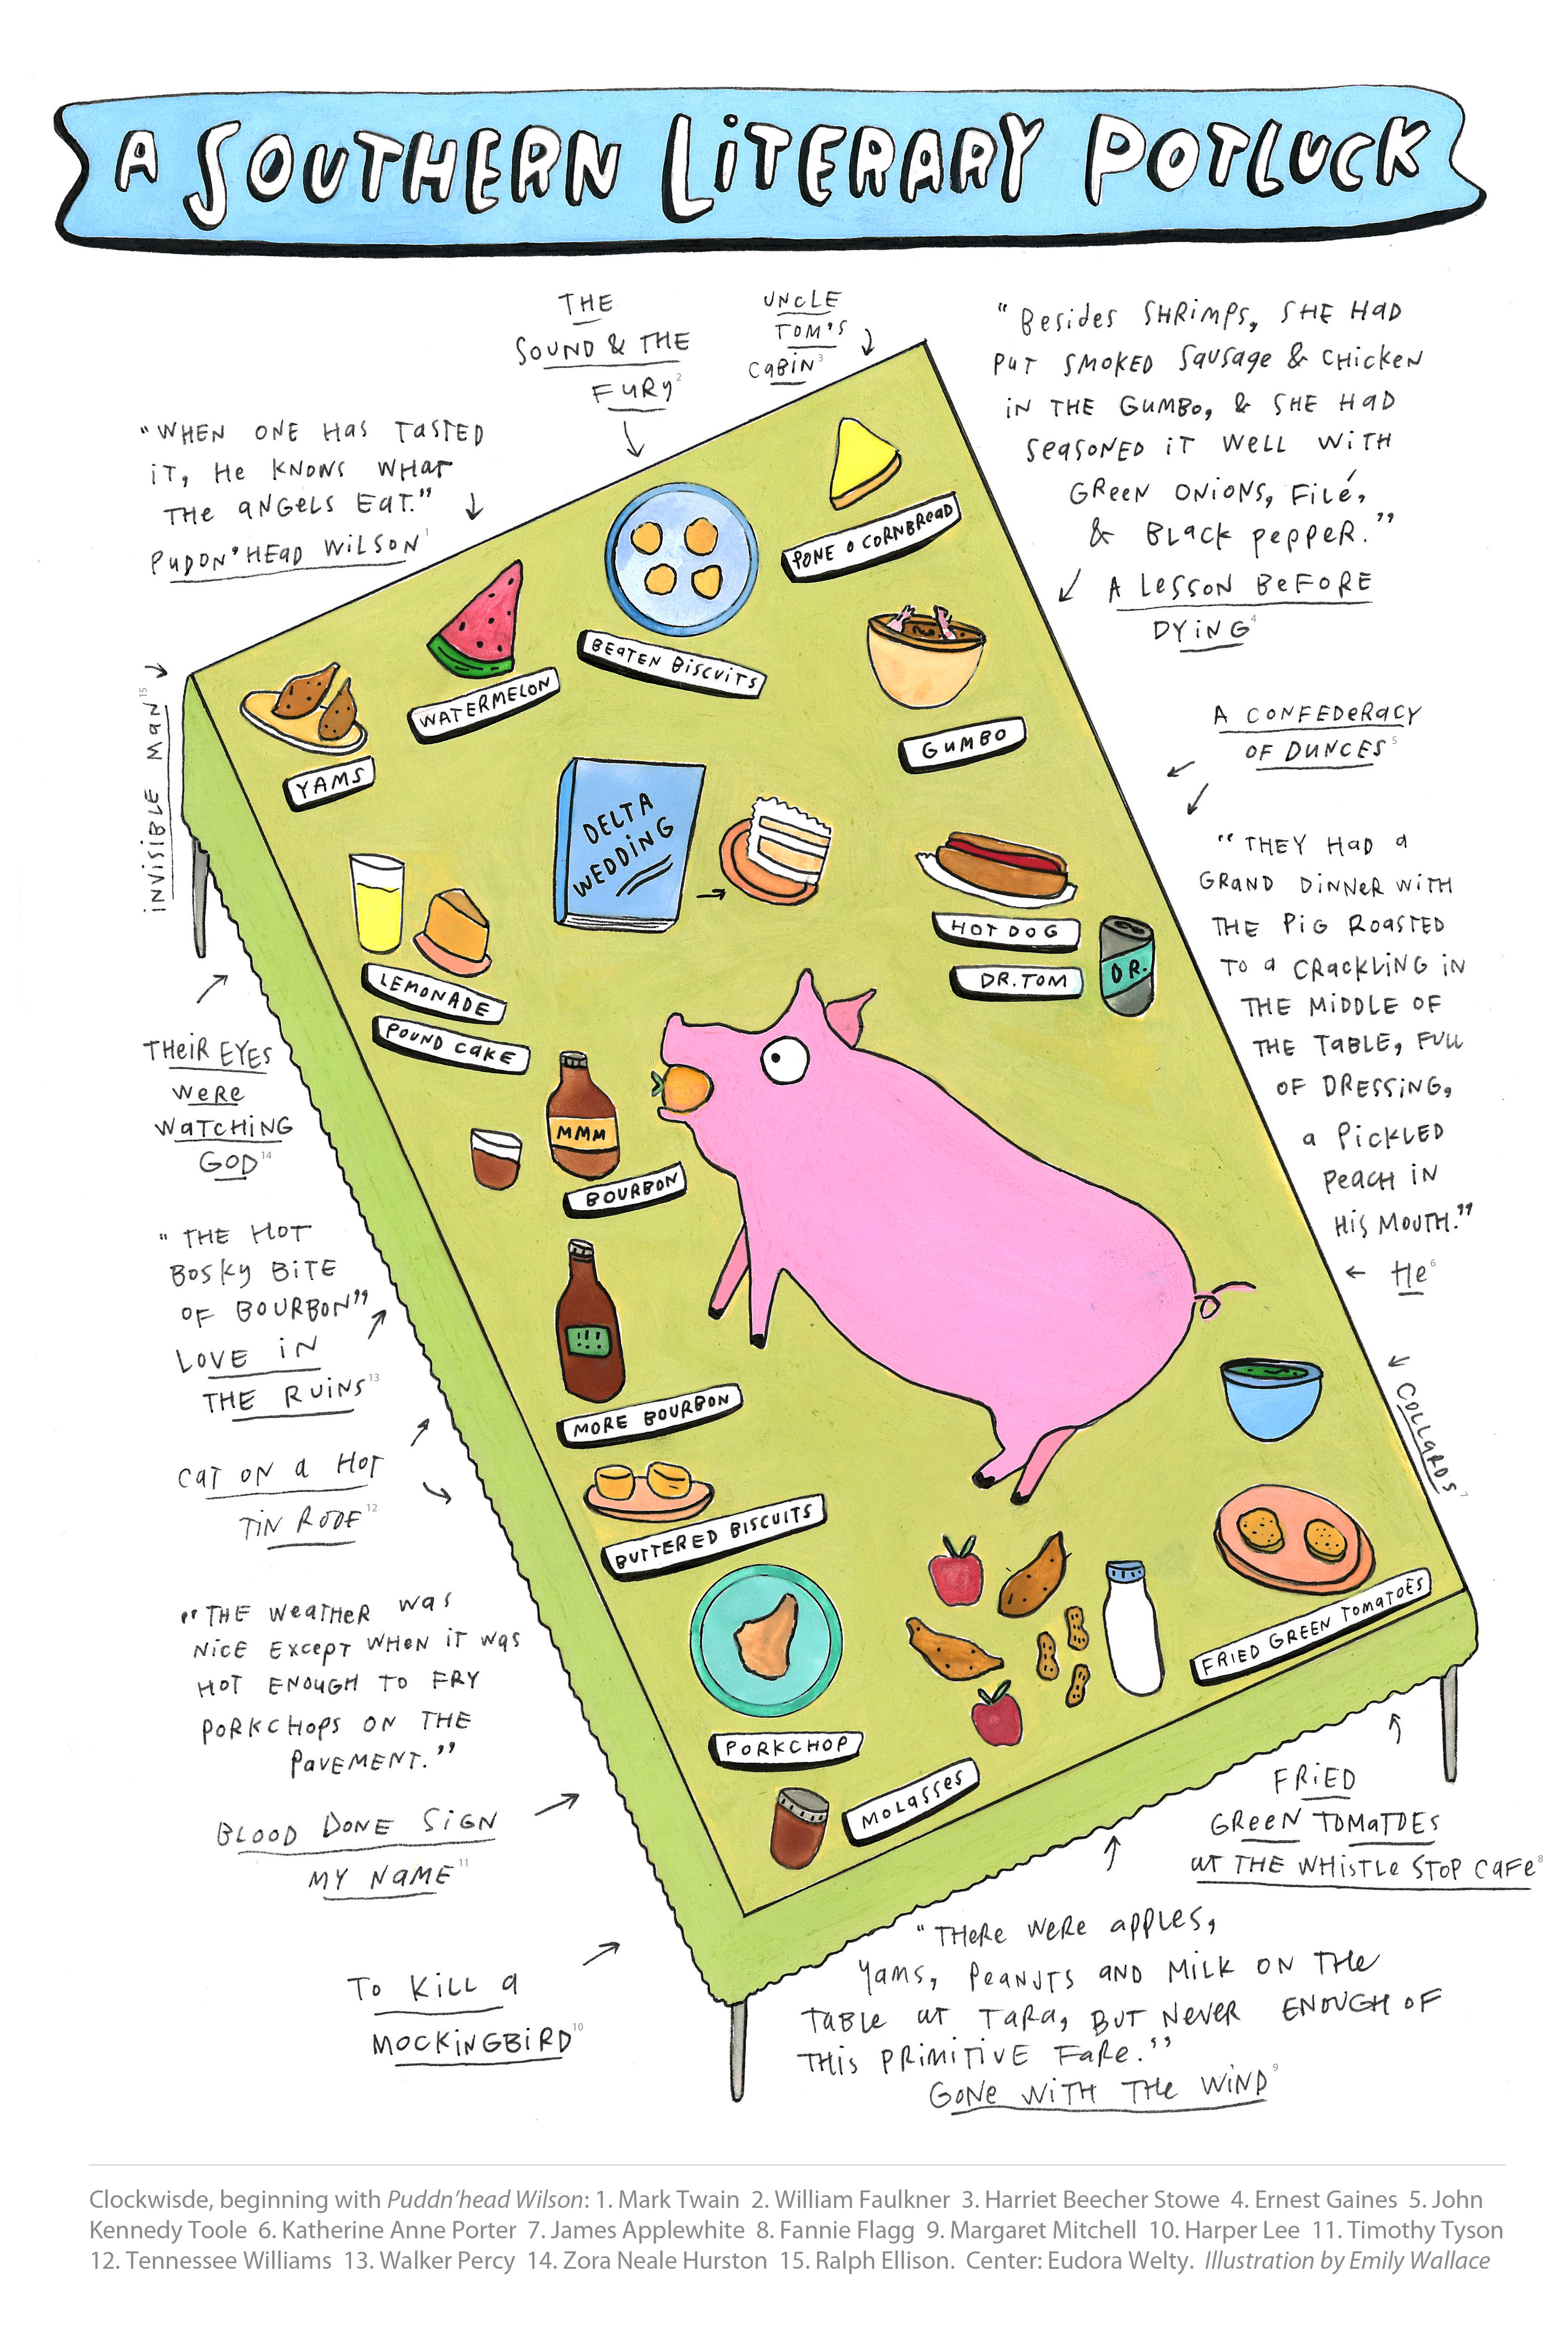 A SOUTHERN LITERARY POTLUCK
THE
SOUND & THE
FURY²
UNCLE
TOM'S
CABIN³
"BESIDES SHRIMPS, SHE HAD
PUT SMOKED SAUSAGE & CHICKEN
IN THE GUMBO, & SHE HAD
SEASONED IT WELL WITH
GREEN ONIONS, FILÉ,
& BLACK PEPPER."
A LESSON BEFORE
DYING⁴
"WHEN ONE HAS TASTED
IT, HE KNOWS WHAT
THE ANGELS EAT."
PUDDN'HEAD WILSON¹
PONE O CORNBREAD
BEATEN BISCUITS
WATERMELON
YAMS
GUMBO
INVISIBLE MAN¹⁵
A CONFEDERACY
OF DUNCES⁵
DELTA
WEDDING
HOT DOG
DR. TOM
DR.
LEMONADE
POUND CAKE
"THEY HAD A
GRAND DINNER WITH
THE PIG ROASTED
TO A CRACKLING IN
THE MIDDLE OF
THE TABLE, FULL
OF DRESSING,
A PICKLED
PEACH IN
HIS MOUTH."
HE⁶
THEIR EYES
WERE
WATCHING
GOD¹⁴
MMM
BOURBON
"THE HOT
BOSKY BITE
OF BOURBON"
LOVE IN
THE RUINS¹³
!!!
MORE BOURBON
COLLARDS⁷
CAT ON A HOT
TIN ROOF¹²
BUTTERED BISCUITS
FRIED GREEN TOMATOES
"THE WEATHER WAS
NICE EXCEPT WHEN IT WAS
HOT ENOUGH TO FRY
PORKCHOPS ON THE
PAVEMENT."
BLOOD DONE SIGN
MY NAME¹¹
PORKCHOP
MOLASSES
FRIED
GREEN TOMATOES
AT THE WHISTLE STOP CAFE⁸
TO KILL A
MOCKINGBIRD¹⁰
"THERE WERE APPLES,
YAMS, PEANUTS AND MILK ON THE
TABLE AT TARA, BUT NEVER ENOUGH OF
THIS PRIMITIVE FARE."
GONE WITH THE WIND⁹
Clockwisde, beginning with Puddn'head Wilson: 1. Mark Twain 2. William Faulkner 3. Harriet Beecher Stowe 4. Ernest Gaines 5. John
Kennedy Toole 6. Katherine Anne Porter 7. James Applewhite 8. Fannie Flagg 9. Margaret Mitchell 10. Harper Lee 11. Timothy Tyson
12. Tennessee Williams 13. Walker Percy 14. Zora Neale Hurston 15. Ralph Ellison. Center: Eudora Welty. Illustration by Emily Wallace